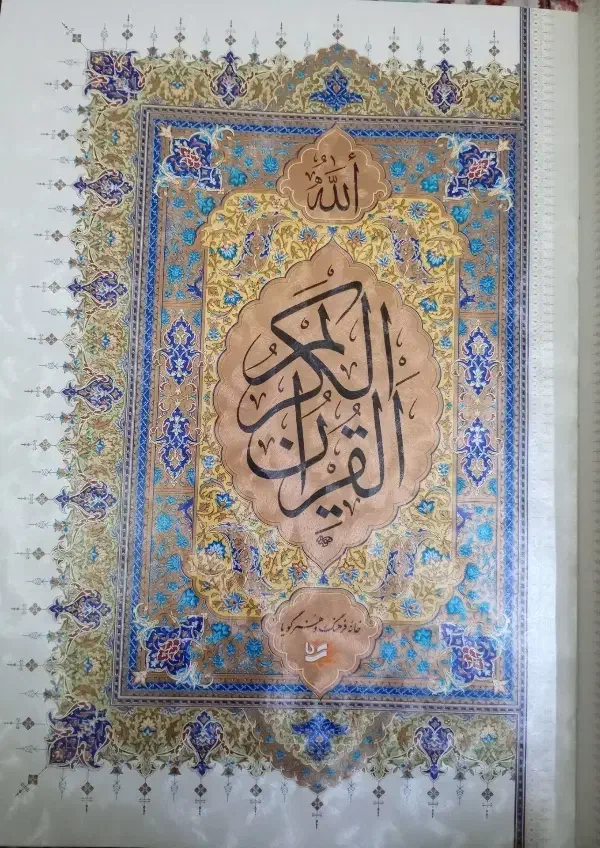 ألله
القرآن
الكريم
خانه فرهنگ و هنر گویا
گویا